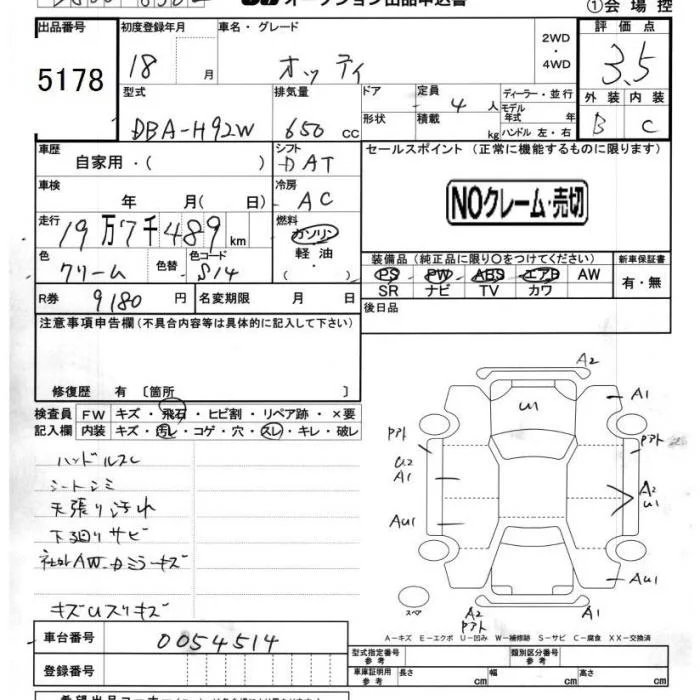 オークション出品申込書
①会場控
出品番号
5178
初度登録年月
18 月
車名・グレード
オッティ
2WD
・
4WD
評価点
3.5
外装 内装
B C
型式
DBA-H92W
排気量
650 cc
ドア
形状
定員
4 人
積載 kg
ディーラー・並行
モデル
年式 年
ハンドル 左・右
車歴
自家用・( )
シフト
DAT
セールスポイント (正常に機能するものに限ります)
NOクレーム・売切
車検
年 月( 日)
冷房
AC
走行
19万7千489 km
燃料
ガソリン
軽油
・
( )
色
クリーム
色替
色コード
S14
装備品 (純正品に限り○をつけてください)
PS PW ABS エアB AW
SR ナビ TV カワ
新車保証書
有・無
R券
9180 円
名変期限 月 日
後日品
注意事項申告欄 (不具合内容等は具体的に記入して下さい)
修復歴 有 〔箇所 〕
検査員 FW キズ・飛石・ヒビ割・リペア跡・×要
記入欄 内装 キズ・汚レ・コゲ・穴・スレ・キレ・破レ
ハンドルスレ
シートシミ
天張り汚れ
下廻りサビ
社外AW
キズUスリキズ
A2
U1
A1
アト
アト
U2
A1
A2
U1
AU1
AU1
スペア
A2
アト
A1
A-キズ E-エクボ U-凹み W-補修跡 S-サビ C-腐食 XX-交換済
車台番号
0054514
登録番号
型式指定番号
参考
類別区分番号
参考
車庫証明用
参考
長さ cm 幅 cm 高さ cm
希望出品コーナー